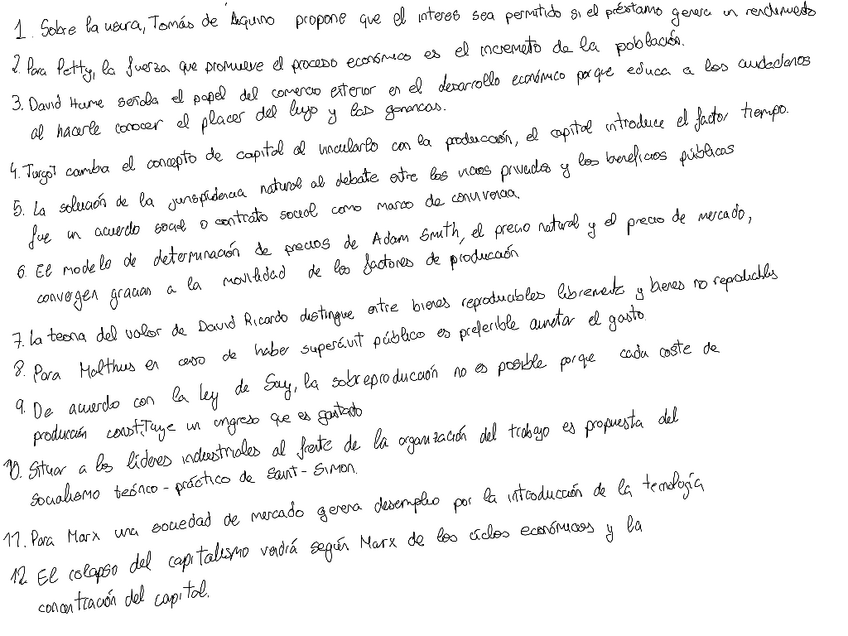 1. Sobre la usura, Tomás de Aquino propone que el interes sea permitido si el préstamo genera un rendimiento
2. Para Petty, la fuerza que promueve el proceso económico es el incremeto de la población.
3. David Hume señala el papel del comercio exterior en el desarrollo económico porque educa a los ciudadanos
al hacerle conocer el placer del lujo y las ganancas.
4. Turgot cambia el concepto de capital al vincularlo con la producción, el capital introduce el factor tiempo.
5. La solución de la jurispridencia natural al debate entre los vicios privados y los beneficios públicos
fue un acuerdo social o contrato social como marco de convivencia.
6. El modelo de determinación de precios de Adam Smith, el precio natural y el precio de mercado,
convergen gracias a la movilidad de los factores de producción
7. La teoria del valor de David Ricardo distingue entre bienes reproducibles libremente y bienes no reproducibles
8. Para Malthus en caso de haber superávit público es preferible aumetar el gasto.
9. De acuerdo con la ley de Say, la sobreproducción no es posible porque cada coste de
producción constituye un ingreso que es gastado
10. Situar a los líderes industriales al frente de la organización del trabajo es propuesta del
socialismo teórico-práctico de Saint-Simon.
11. Para Marx una sociedad de mercado genera desempleo por la introducción de la tecnología
12 El colapso del capitalismo vendrá según Marx de los ciclos económicos y la
concentración del capital.